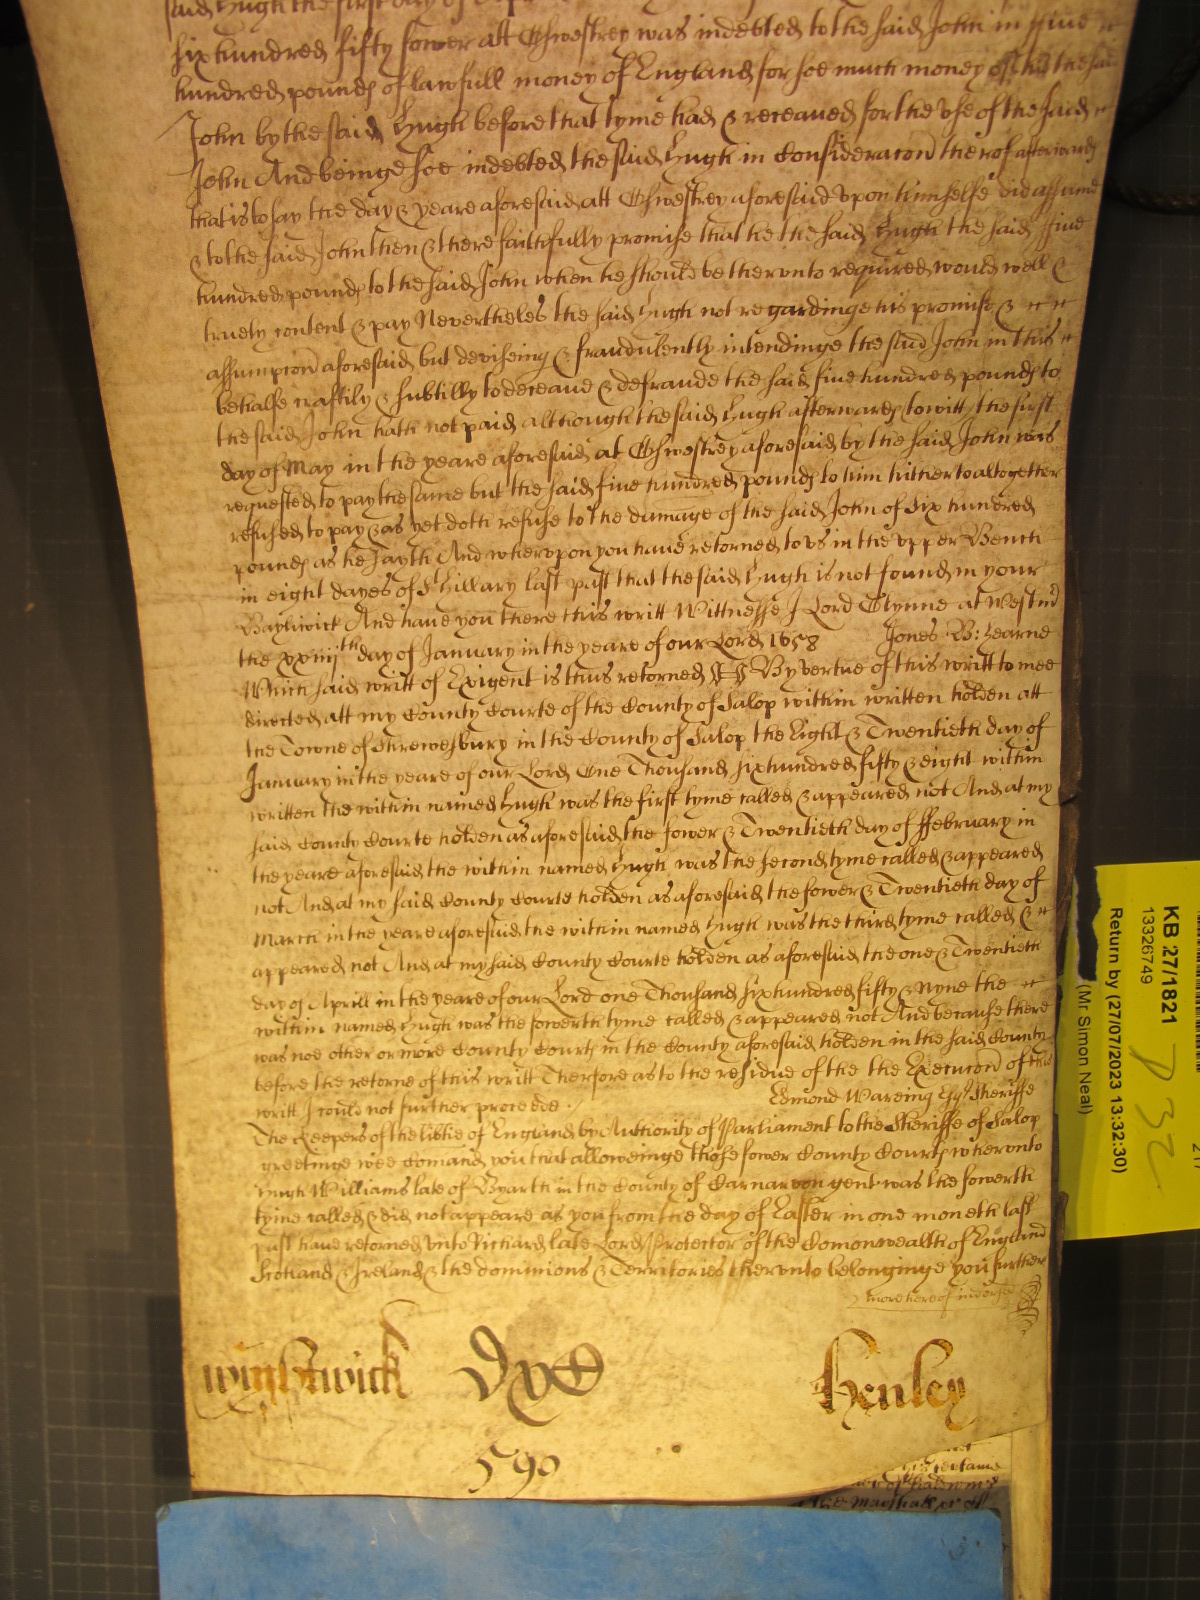 said Hugh the first day of
six hundred fifty fower att Oswestrey was indebted to the said John in ffive
hundred pounds of lawfull money of England for soe much money of the said
John by the said Hugh before that tyme had & receaued for the vse of the said
John And beinge soe indebted the said Hugh in Consideracon therof afterwards
that is to say the day & yeare aforesaid att Oswestrey aforesaid vpon himselfe did assume
& to the said John then & there faithfully promise that he the said Hugh the said ffive
hundred pounds to the said John when he should be therunto required would well &
truely content & pay Nevertheles the said Hugh not regardinge his promise &
assumpcon aforesaid but deviseing & fraudulently intendinge the said John in this
behalfe craftily & subtilly to deceaue & defraude the said five hundred pounds to
the said John hath not paid although the said Hugh afterwards to witt the first
day of May in the yeare aforesaid at Oswestrey aforesaid by the said John was
requested to pay the same but the said five hundred pounds to him hitherto altogether
refused to pay & as yet doth refuse to the damage of the said John of Six hundred
pounds as he sayth And wherupon you haue retorned to vs in the vpper Bench
in eight dayes of St Hillary last past that the said Hugh is not found in your
Bayliwick And haue you there this writt Wittnesse J Lord Glynne at Westmr
the xxiiijth day of January in the yeare of our Lord 1658 Jones B: Hearne
Which said writt of Exigent is thus retorned ss By vertue of this writt to mee
directed att my County Courte of the County of Salop within written holden att
the Towne of Shrewesbury in the County of Salop the Eight & Twentieth day of
January in the yeare of our Lord One Thousand six hundred fifty & eight within
written the within named Hugh was the first tyme called & appeared not And at my
said County Courte holden as aforesaid the fower & Twentieth day of ffebruary in
the yeare aforesaid the within named Hugh was the second tyme called & appeared
not And at my said County Courte holden as aforesaid the fower & Twentieth day of
March in the yeare aforesaid the within named Hugh was the third tyme called &
appeared not And at my said County Courte holden as aforesaid the one & Twentieth
day of Aprill in the yeare of our Lord one Thousand six hundred fifty & Nyne the
within named Hugh was the fowerth tyme called & appeared not And because there
was noe other or more County Courts in the County aforesaid holden in the said County
before the retorne of this writt Therfore as to the residue of the the Execucon of this
writt I could not further proceede. Edmond Wareing Esqr Sheriffe
The Keepers of the libtie of England by Authority of Parliament to the Sheriffe of Salop
greetinge wee Comand you that alloweinge those fower County Courts wherunto
Hugh Williams late of Byarth in the County of Carnarvon gent was the fowerth
tyme called & did not appeare as you from the day of Easter in one moneth last
past haue retorned vnto Richard late Lord Protector of the Comonwealth of England
Scotland & Ireland & the dominions & Territories therunto belonginge you further
more hereof indorsed
Wightwick Dye Henley
590
KB 27/1821
13326749
Return by (27/07/2023 13:32:30)
(Mr Simon Neal)
D 32